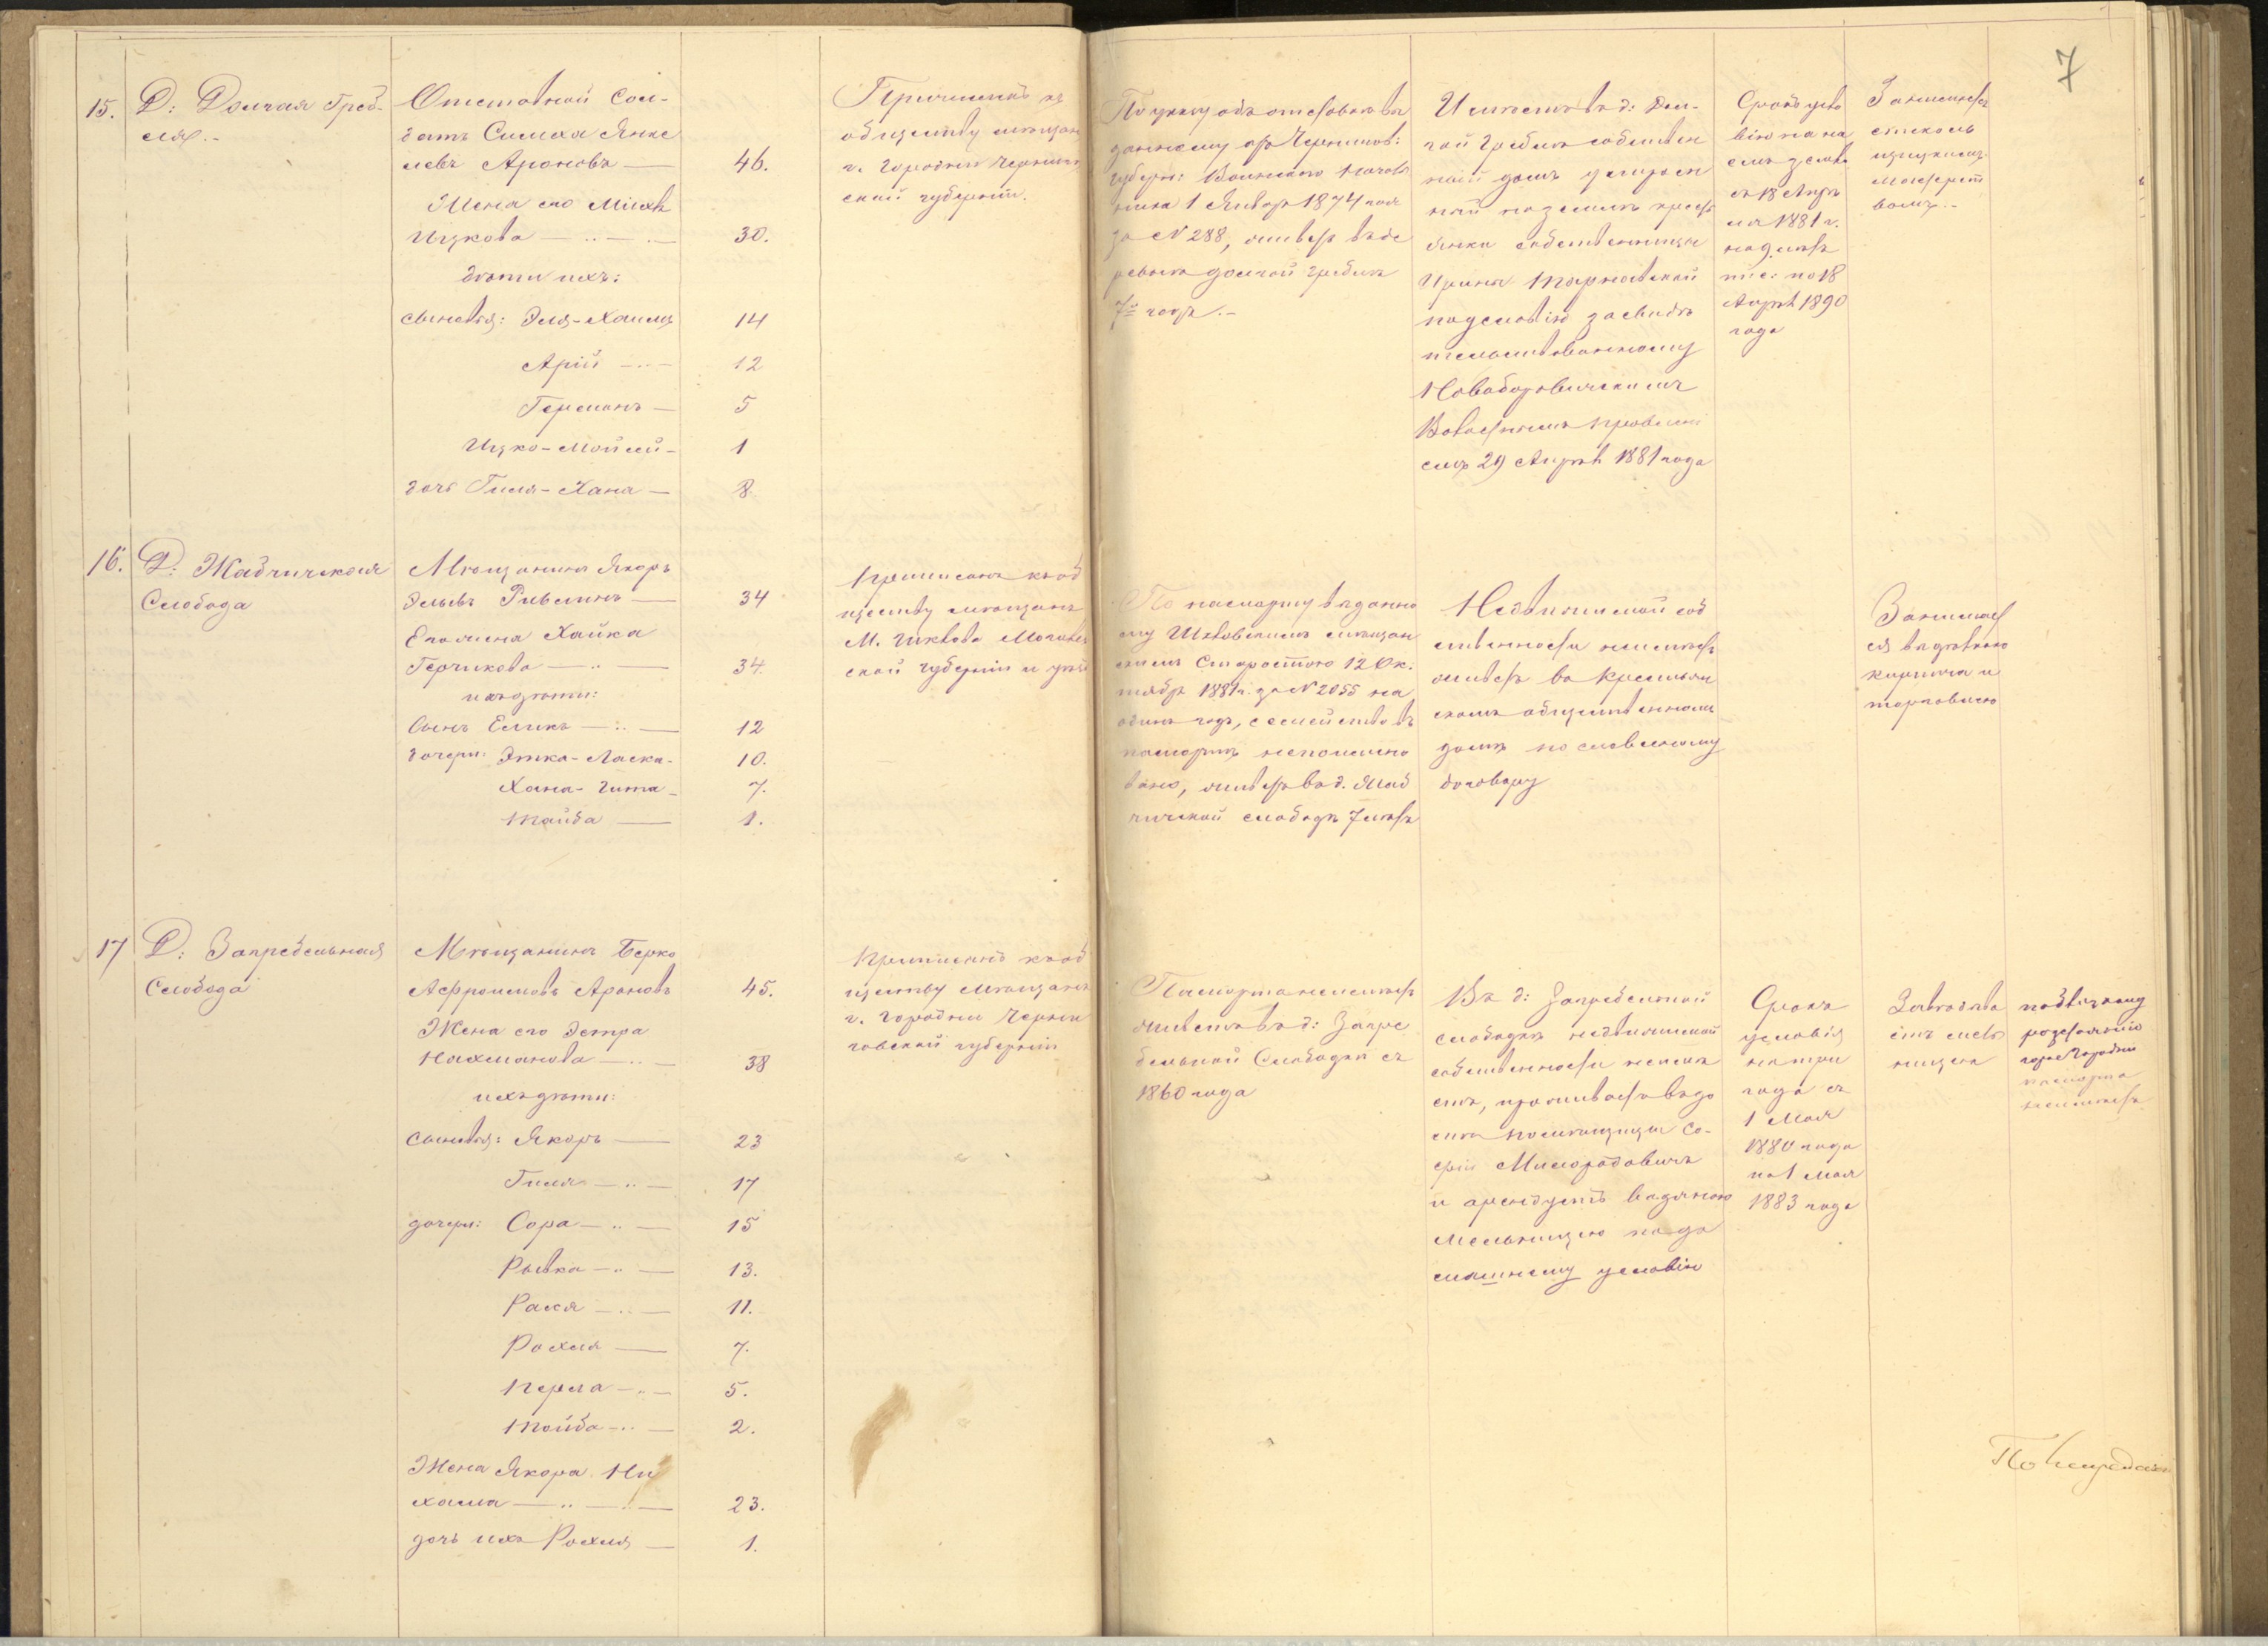 7
15.
Д: Долгая Греб-
ля.-
Отставной Сол-
датъ Симха Янке
левъ Ароновъ — 46.
Жена его
Ицкова — 30.
дѣти ихъ:
сыновья: Эля-Хаимъ 14
Арій — 12
Германъ — 5
Ицко-Мойсей - 1
дочь Гиля-Хана — 8.
Причисленъ къ
обществу мѣщан
г. Городни Чернигов
ской губерніи.
По указу объ отставкѣ вы
данному отъ Чернигов:
губерн: Воинскаго Началь
ника 1 Января 1874 года
за № 288, живетъ въ де
ревнѣ долгой гребли
7й годъ.-
Имѣетъ въ д: Дол-
гой Гребли собствен
ный домъ устроен
ный на землѣ кресть
янки собственницы
Ирины Тарнавской
по условію засвидѣ
тельствованному
Новоборовичскимъ
Волостнымъ правлені
емъ 29 Апрѣл 1881 года
Срокъ усло
вію на на
емъ земли
съ 18 Апрѣ
ля 1881 г.
на 9 лѣтъ
т.е: по 18
Апрѣл 1890
года
Занимается
стеколь
нымъ
мастерст
вомъ.-
16.
Д: Жабчичская
Слобода
Мѣщанинъ Якоръ
Эльевъ Ривлинъ — 34
Его жена Хайка
Герчикова — 34.
ихъ дѣти:
Сынъ Еликъ — 12
дочери: Этка-Ласка - 10.
Хана-Гита - 7.
Тайба — 1.
Приписанъ къ об
ществу мѣщанъ
М. Шклова Могилев
ской губерніи и уѣзд
По паспорту выданно
му Шкловскимъ мѣщан
скимъ Старостою 12 Ок:
тября 1881 г. за № 2055 на
одинъ годъ, семейство въ
паспортѣ непоимено
вано, живетъ въ д. Жаб
чичской слободѣ 7 лѣтъ
Недвижимой соб
ственности неимѣетъ
живетъ въ Крестьян
скомъ общественномъ
домѣ по словесному
договору
Занимает
ся выдѣлкою
кирпича и
торговлею
17
Д: Запредѣльная
Слобода
Мѣщанинъ Берко
Афроимовъ Ароновъ 45.
Жена его Эстра
Нахманова — 38
ихъ дѣти:
сыновья: Якоръ — 23
Гиля — 17
дочери: Сора — 15
Рывка — 13.
Рася — 11.
Рохля — 7.
Перла — 5.
Тайба — 2.
Жена Якора Ни
хама — 23.
дочь ихъ Рохля — 1.
Приписанъ къ об
ществу Мѣщанъ
г. Городни Черни
говской губерніи
Паспорта неимѣетъ
живетъ въ д: Запре
дѣльной Слободѣ съ
1860 года
Въ д: Запредѣльной
слободѣ недвижимой
собственности неимѣ
етъ, проживаетъ въ до
мѣ помѣщицы Со-
фіи Милорадовичъ
и арендуетъ водяную
мельницу по до
машнему условію
Срокъ
условія
на три
года съ
1 Мая
1880 года
по 1 Мая
1883 года
паспорта
неимѣетъ